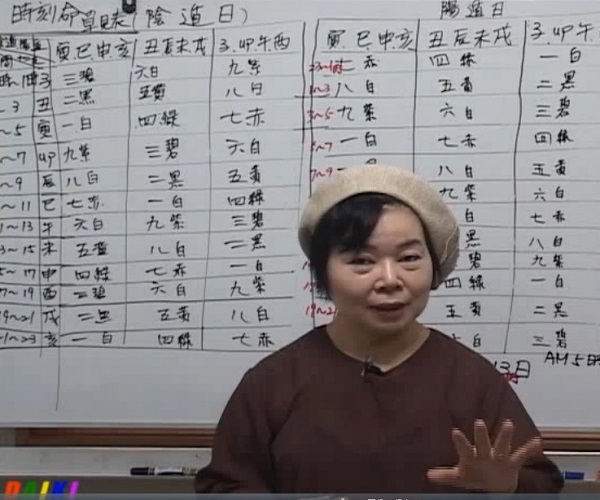 時刻命早見(陰遁日)
陽遁日
寅.巳.申.亥 丑辰未戌 子.卯午酉
寅.巳.申.亥 丑辰未戌 子卯午
子 三碧 六白 九紫 七赤 四緑 一白
~3 丑 二黒 五黄 八白 八白 五黄 二黒
~5 寅 一白 四緑 七赤 3~5 九紫 六白 三碧
~7 卯 九紫 三碧 六白 一白 七赤 四緑
~9 辰 八白 二黒 五黄 7~9 八白 五黄
~11 巳 七赤 一白 四緑 九紫 六白
~13 午 六白 九紫 三碧 白 七赤
3~15 未 五黄 八白 二黒 黒 八白
5~17 申 四緑 七赤 一白 碧 九紫
7~19 酉 三碧 六白 九紫 四緑 一白
19~21 戌 二黒 五黄 八白 19~21 五黄 二黒
1~23 亥 一白 四緑 七赤 六白 三碧
13日
AM5時
DAIKI